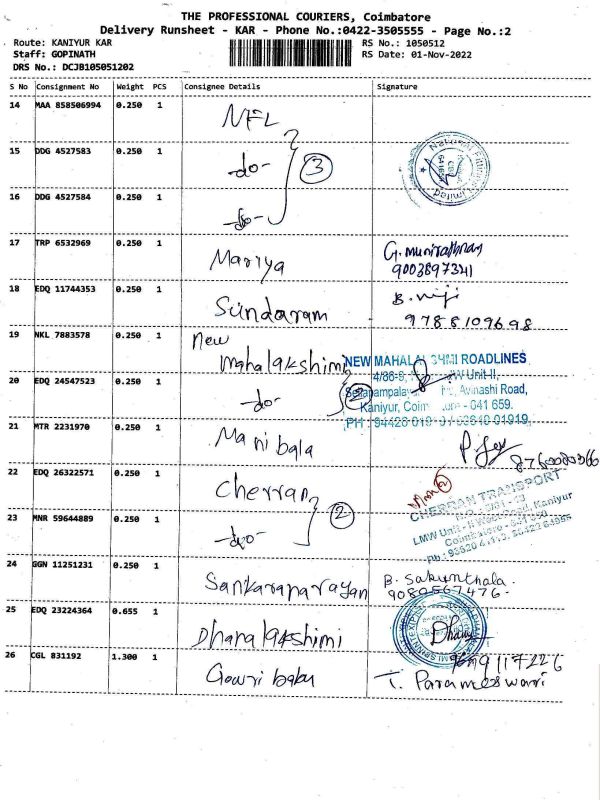 THE PROFESSIONAL COURIERS, Coimbatore
Delivery Runsheet - KAR - Phone No.:0422-3505555 - Page No.:2
Route: KANIYUR KAR RS No.: 1050512
Staff: GOPINATH RS Date: 01-Nov-2022
DRS No.: DCJB105051202
S No Consignment No Weight PCS Consignee Details Signature
14 MAA 858506994 0.250 1 NFL
15 DDG 4527583 0.250 1 -do- 3
16 DDG 4527584 0.250 1 -do-
17 TRP 6532969 0.250 1 Mariya G. Munirathnam
9003897341
18 EDQ 11744353 0.250 1 Sundaram B.
9788109698
19 NKL 7883578 0.250 1 New
Mahalakshimi NEW MAHALAKSHMI ROADLINES
Unit-II,
20 EDQ 24547523 0.250 1 -do- 2 Avinashi Road,
Kaniyur, - 641 659.
21 MTR 2231970 0.250 1 Manibala
22 EDQ 26322571 0.250 1 Cherran CHERRAN TRANSPORT
23 MNR 59644889 0.250 1 -do- 2 Kaniyur
24 GGN 11251231 0.250 1 Sankaranarayan B. Sakunthala.
9080567476.
25 EDQ 23224364 0.655 1 Dhanalakshimi
26 CGL 831192 1.300 1 Gowri babu T. Parameswari